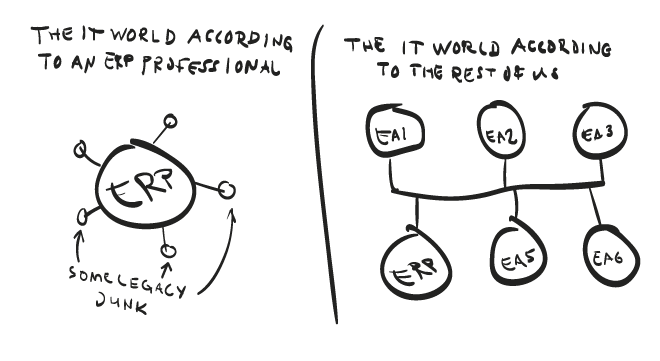 THE IT WORLD ACCORDING
TO AN ERP PROFESSIONAL
ERP
SOME LEGACY
JUNK
THE IT WORLD ACCORDING
TO THE REST OF US
EA1 EA2 EA3
ERP EA5 EA6